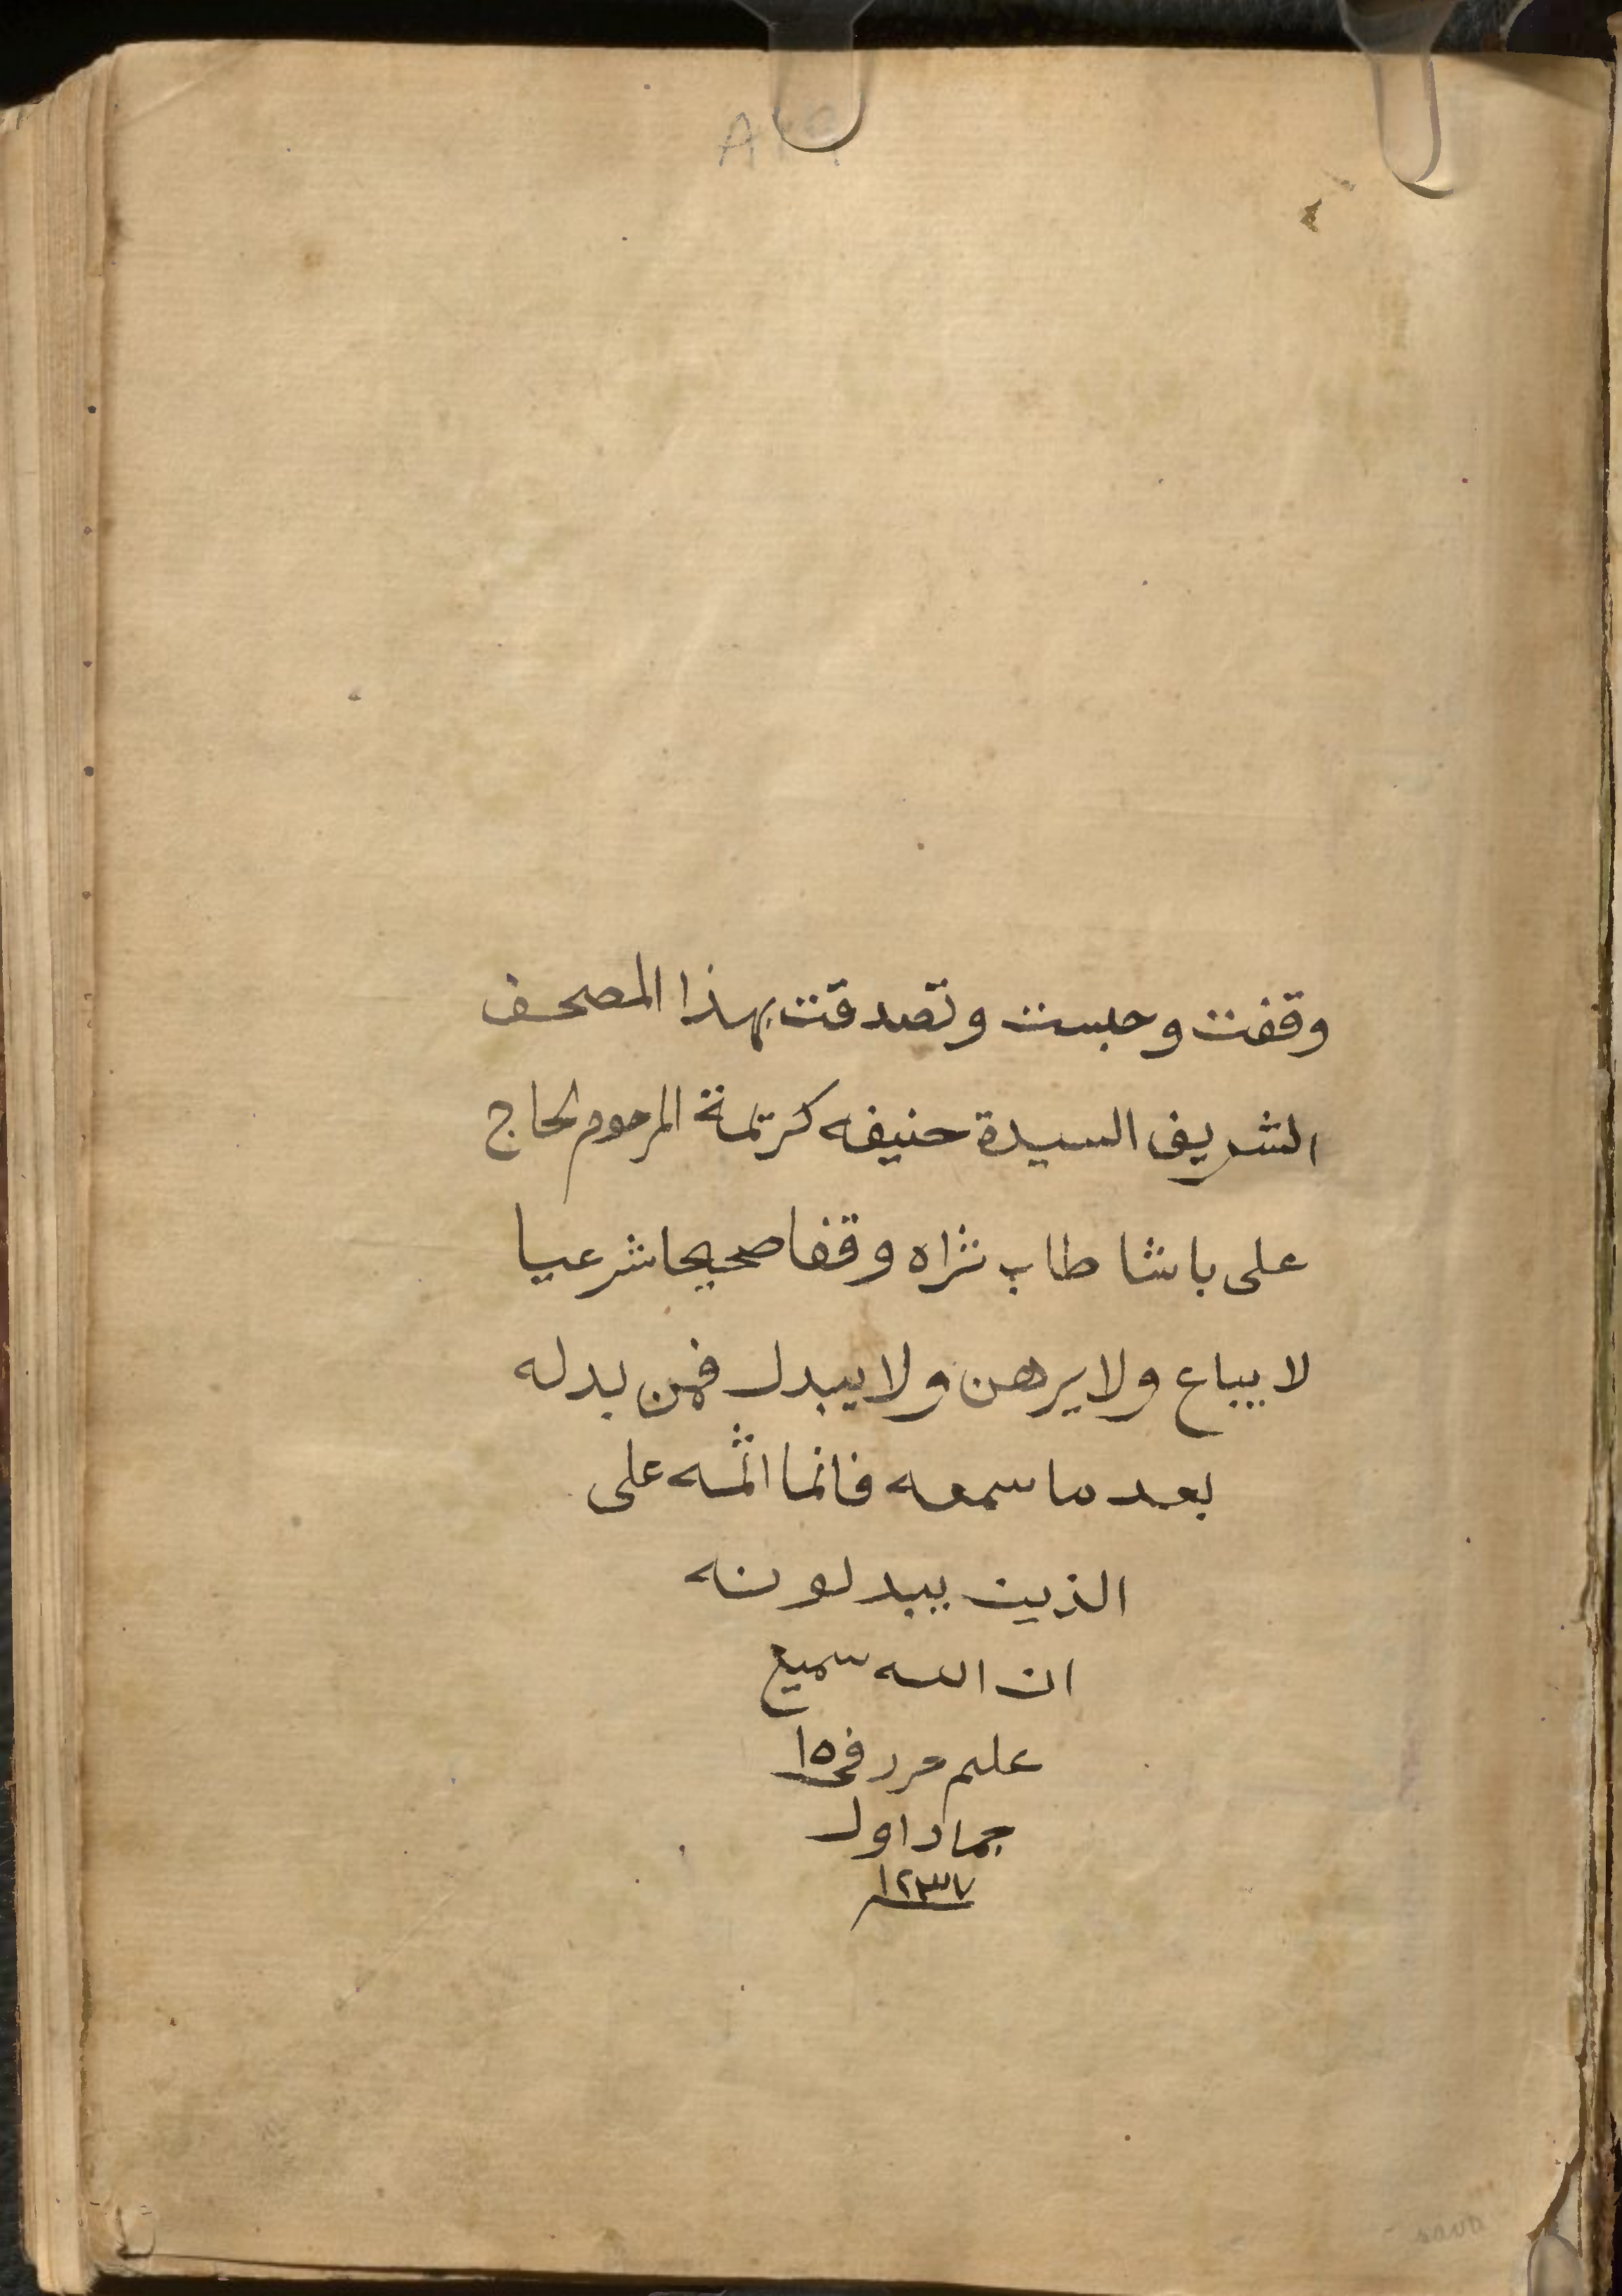 وقفت وحبست وتصدقت بهذا المصحف
الشريف السيدة حنيفه كريمة المرحوم الحاج
على باشا طاب ثراه وقفا صحيحا شرعيا
لا يباع ولا يرهن ولا يبدل فمن بدله
بعد ما سمعه فانما اثمه على
الذين يبدلونه
ان الله سميع
عليم حرر فى ١٥
جماد اول
١٢٣٧